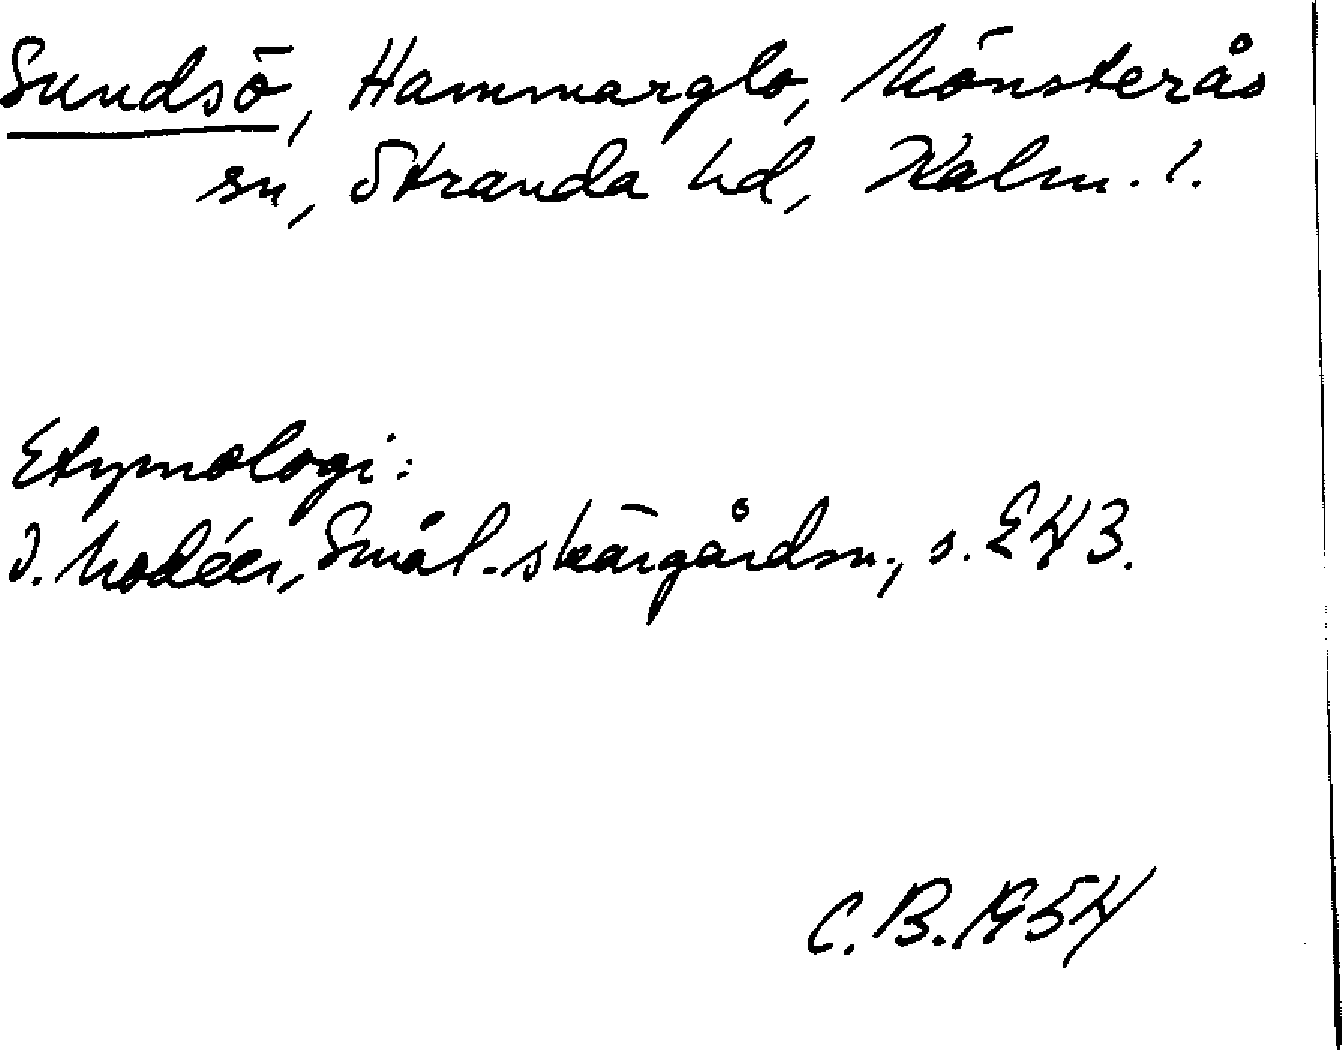 Sundsö, Hammarglo, Mönsterås
sn, Stranda hd, Kalm. l.
Etymologi:
I. Modéer, Smål. skärgårdsn., s. 243.
C. B. 1954